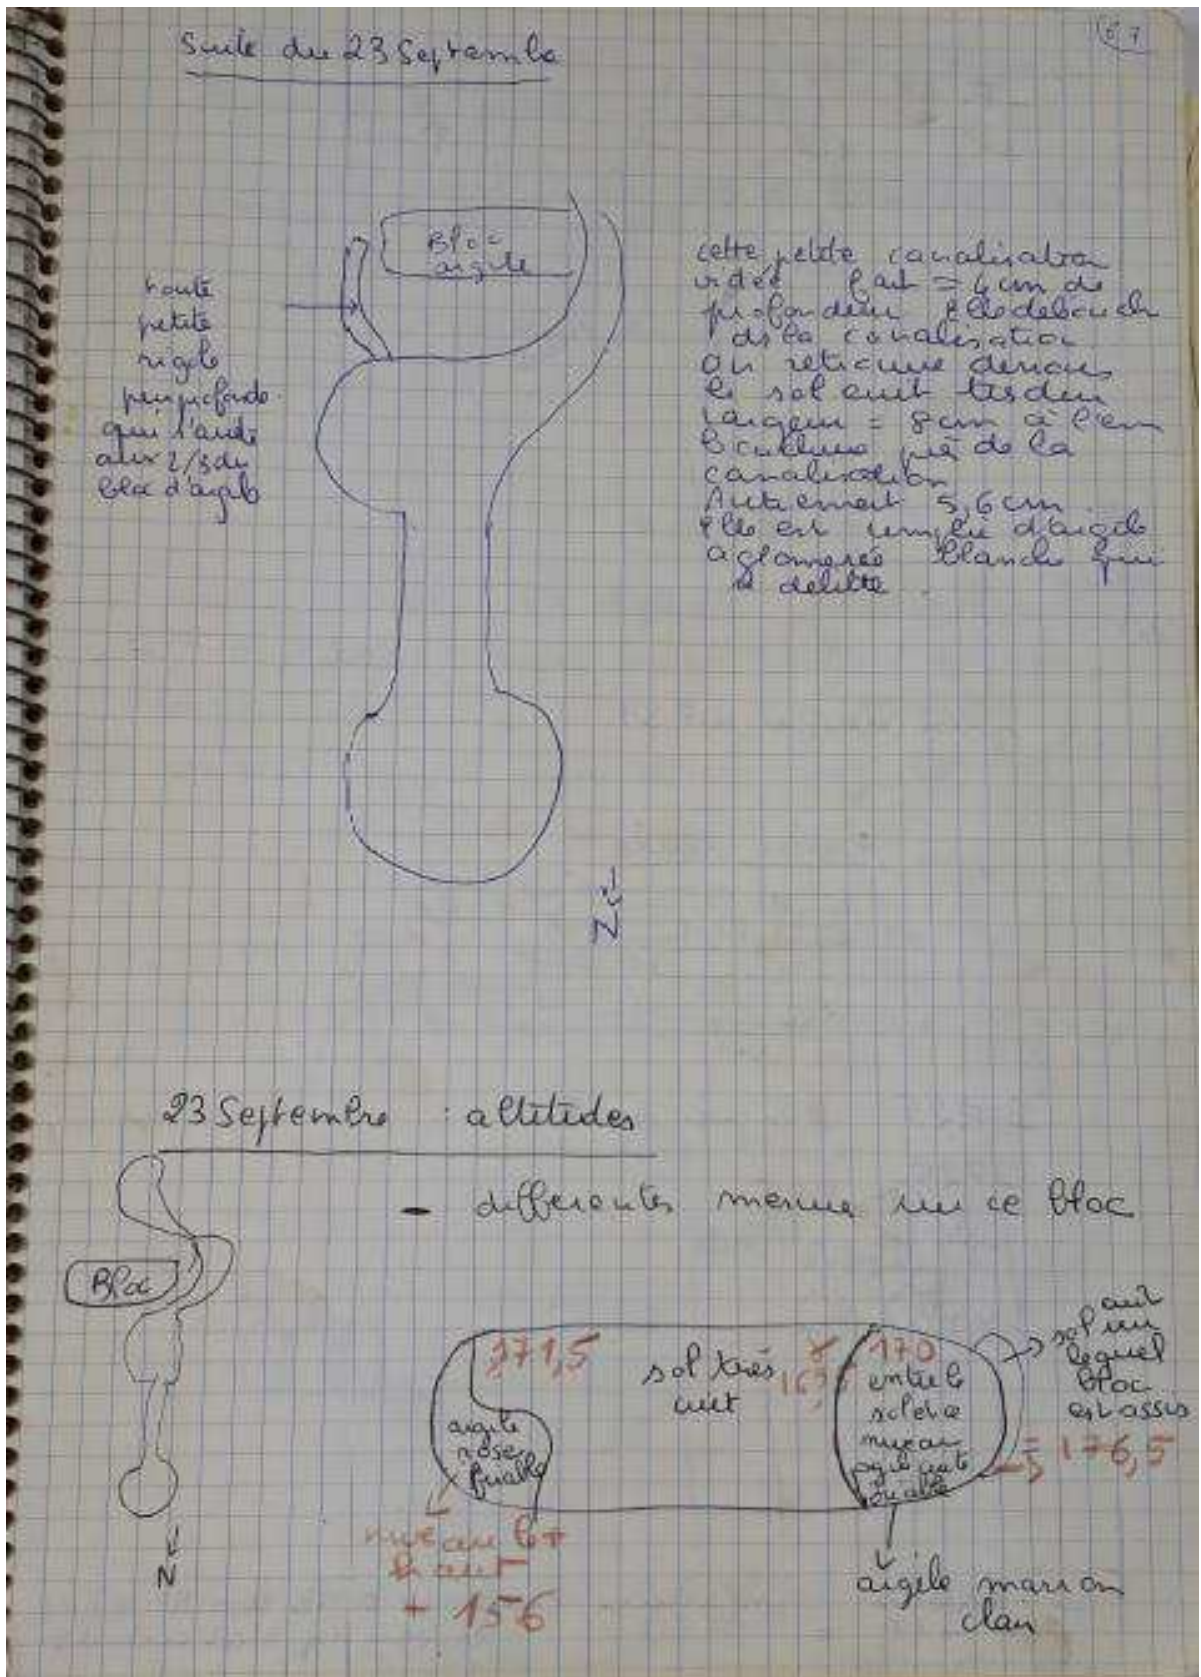 Suite du 23 Septembre
7
Bloc
argile
toute
petite
rigole
peu profonde
qui s'arrête
aux 2/3 du
bloc d'argile
cette petite canalisation
vidée fait = 4 cm de
profondeur Elle débouche
ds la canalisation
On retrouve dessous
le sol cuit très dur
Largeur = 8 cm à l'em
bouchure près de la
canalisation
Autrement 5,6 cm
Elle est remplie d'argile
aglomerée blanche qui
se délite.
N
23 Septembre : altitudes
- differentes mesures sur ce bloc
Bloc
N
171,5
sol très
cuit
170
entre le
sol et ce
niveau
argile cuite
friable
argile
rose
friable
niveau le +
haut
- 156
sol sur
lequel
bloc
est assis
= 176,5
argile marron
clair